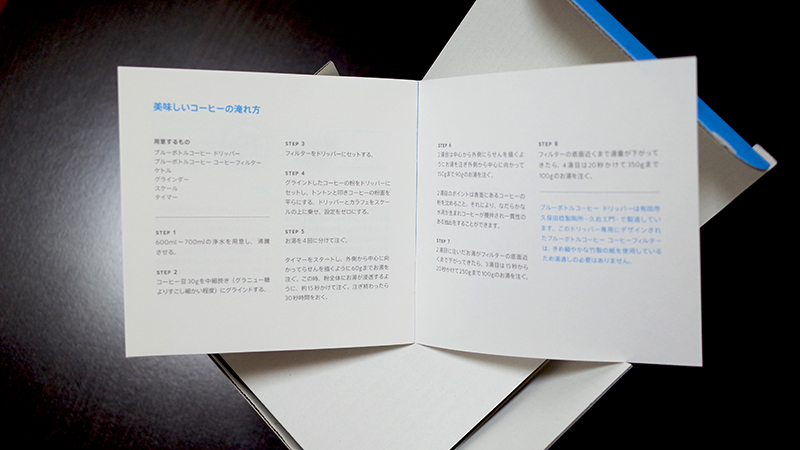 美味しいコーヒーの淹れ方
用意するもの
ブルーボトルコーヒー ドリッパー
ブルーボトルコーヒー コーヒーフィルター
ケトル
グラインダー
スケール
タイマー
STEP 1
600ml 〜 700mlの浄水を用意し、沸騰
させる。
STEP 2
コーヒー豆30gを中細挽き（グラニュー糖
よりすこし細かい程度）にグラインドする。
STEP 3
フィルターをドリッパーにセットする。
STEP 4
グラインドしたコーヒーの粉をドリッパーに
セットし、トントンと叩きコーヒーの粉面を
平らにする。ドリッパーとカラフェをスケー
ルの上に乗せ、設定をゼロにする。
STEP 5
お湯を4回に分けて注ぐ。
タイマーをスタートし、外側から中心に向
かってらせんを描くように60gまでお湯を
注ぐ。この時、粉全体にお湯が浸透するよ
うに、約15秒かけて注ぐ。注ぎ終わったら
30秒時間をおく。
STEP 6
2湯目は中心から外側にらせんを描くよ
うにお湯を注ぎ外側から中心に向かって
150gまで90gのお湯を注ぐ。
2湯目のポイントは表面にあるコーヒーの
粉を沈めること。それにより、なだらかな
水流が生まれコーヒーが攪拌され一貫性の
ある抽出をすることができます。
STEP 7
2湯目に注いだお湯がフィルターの底面近
くまで下がってきたら、3湯目は15秒から
20秒かけて250gまで100gのお湯を注ぐ。
STEP 8
フィルターの底面近くまで湯量が下がって
きたら、4湯目は20秒かけて350gまで
100gのお湯を注ぐ。
ブルーボトルコーヒー ドリッパーは有田焼
久保田稔製陶所 - 久右エ門 - で製造してい
ます。このドリッパー専用にデザインされ
たブルーボトルコーヒー コーヒーフィルター
は、きめ細やかな竹製の紙を使用している
ため湯通しの必要はありません。